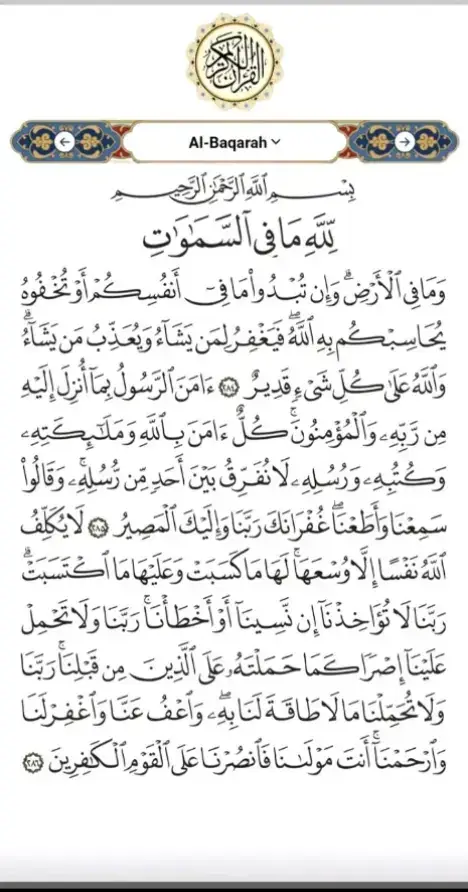 القرآن الكريم
Al-Baqarah
بِسْمِ ٱللَّهِ ٱلرَّحْمَٰنِ ٱلرَّحِيمِ
لِّلَّهِ مَا فِى ٱلسَّمَٰوَٰتِ
وَمَا فِى ٱلْأَرْضِ ۗ وَإِن تُبْدُوا۟ مَا فِىٓ أَنفُسِكُمْ أَوْ تُخْفُوهُ
يُحَاسِبْكُم بِهِ ٱللَّهُ ۖ فَيَغْفِرُ لِمَن يَشَآءُ وَيُعَذِّبُ مَن يَشَآءُ ۗ
وَٱللَّهُ عَلَىٰ كُلِّ شَىْءٍ قَدِيرٌ ﴿٢٨٤﴾ ءَامَنَ ٱلرَّسُولُ بِمَآ أُنزِلَ إِلَيْهِ
مِن رَّبِّهِۦ وَٱلْمُؤْمِنُونَ ۚ كُلٌّ ءَامَنَ بِٱللَّهِ وَمَلَٰٓئِكَتِهِۦ
وَكُتُبِهِۦ وَرُسُلِهِۦ لَا نُفَرِّقُ بَيْنَ أَحَدٍ مِّن رُّسُلِهِۦ ۚ وَقَالُوا۟
سَمِعْنَا وَأَطَعْنَا ۖ غُفْرَانَكَ رَبَّنَا وَإِلَيْكَ ٱلْمَصِيرُ ﴿٢٨٥﴾ لَا يُكَلِّفُ
ٱللَّهُ نَفْسًا إِلَّا وُسْعَهَا ۚ لَهَا مَا كَسَبَتْ وَعَلَيْهَا مَا ٱكْتَسَبَتْ ۗ
رَبَّنَا لَا تُؤَاخِذْنَآ إِن نَّسِينَآ أَوْ أَخْطَأْنَا ۚ رَبَّنَا وَلَا تَحْمِلْ
عَلَيْنَآ إِصْرًا كَمَا حَمَلْتَهُۥ عَلَى ٱلَّذِينَ مِن قَبْلِنَا ۚ رَبَّنَا
وَلَا تُحَمِّلْنَا مَا لَا طَاقَةَ لَنَا بِهِۦ ۖ وَٱعْفُ عَنَّا وَٱغْفِرْ لَنَا
وَٱرْحَمْنَآ ۚ أَنتَ مَوْلَىٰنَا فَٱنصُرْنَا عَلَى ٱلْقَوْمِ ٱلْكَٰفِرِينَ ﴿٢٨٦﴾